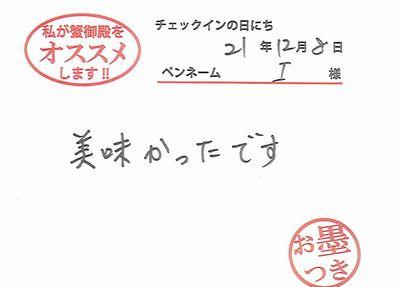 私が蟹御殿を
オススメ
します!!
チェックインの日にち
21年12月8日
ペンネーム I 様
美味かったです
お墨
つき